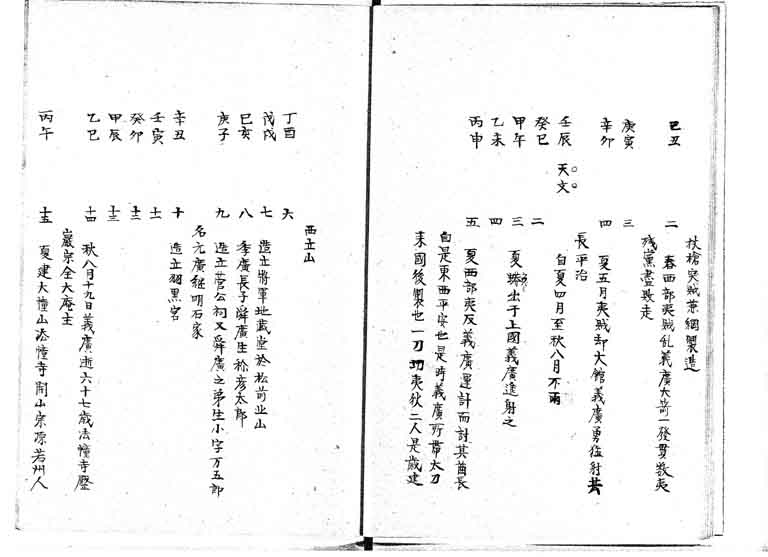 扶槍突賊兼綱製造
己丑 二 春西部夷賊乱義廣大哥一發貫数夷
残黨盡敗走
庚寅 三
辛卯 四 夏五月夷賊却大館義廣勇猛射其
長平治
壬辰 天文 自夏四月至秋八月不雨
癸巳 二
甲午 三 夏 出于上國義廣進射之
乙未 四
丙申 五 夏西部夷反義廣運計而討其酋長
自是東西平安也是時義廣所帶太刀
来國後製也一刀切夷狄二人是歳建
西立山
丁酉 六
戊戌 七 造立将軍地蔵堂於松前北山
己亥 八 季廣長子舜廣生称彦太郎
庚子 九 造立菅公祠又舜廣之弟生小字万五郎
名元廣継明石家
辛丑 十 造立羽黒宮
壬寅 十一
癸卯 十二
甲辰 十三
乙巳 十四 秋八月十九日義廣逝六十七歳法幢寺殿
巌宗全大庵主
丙午 十五 夏建大幢山法幢寺開山宗源若州人